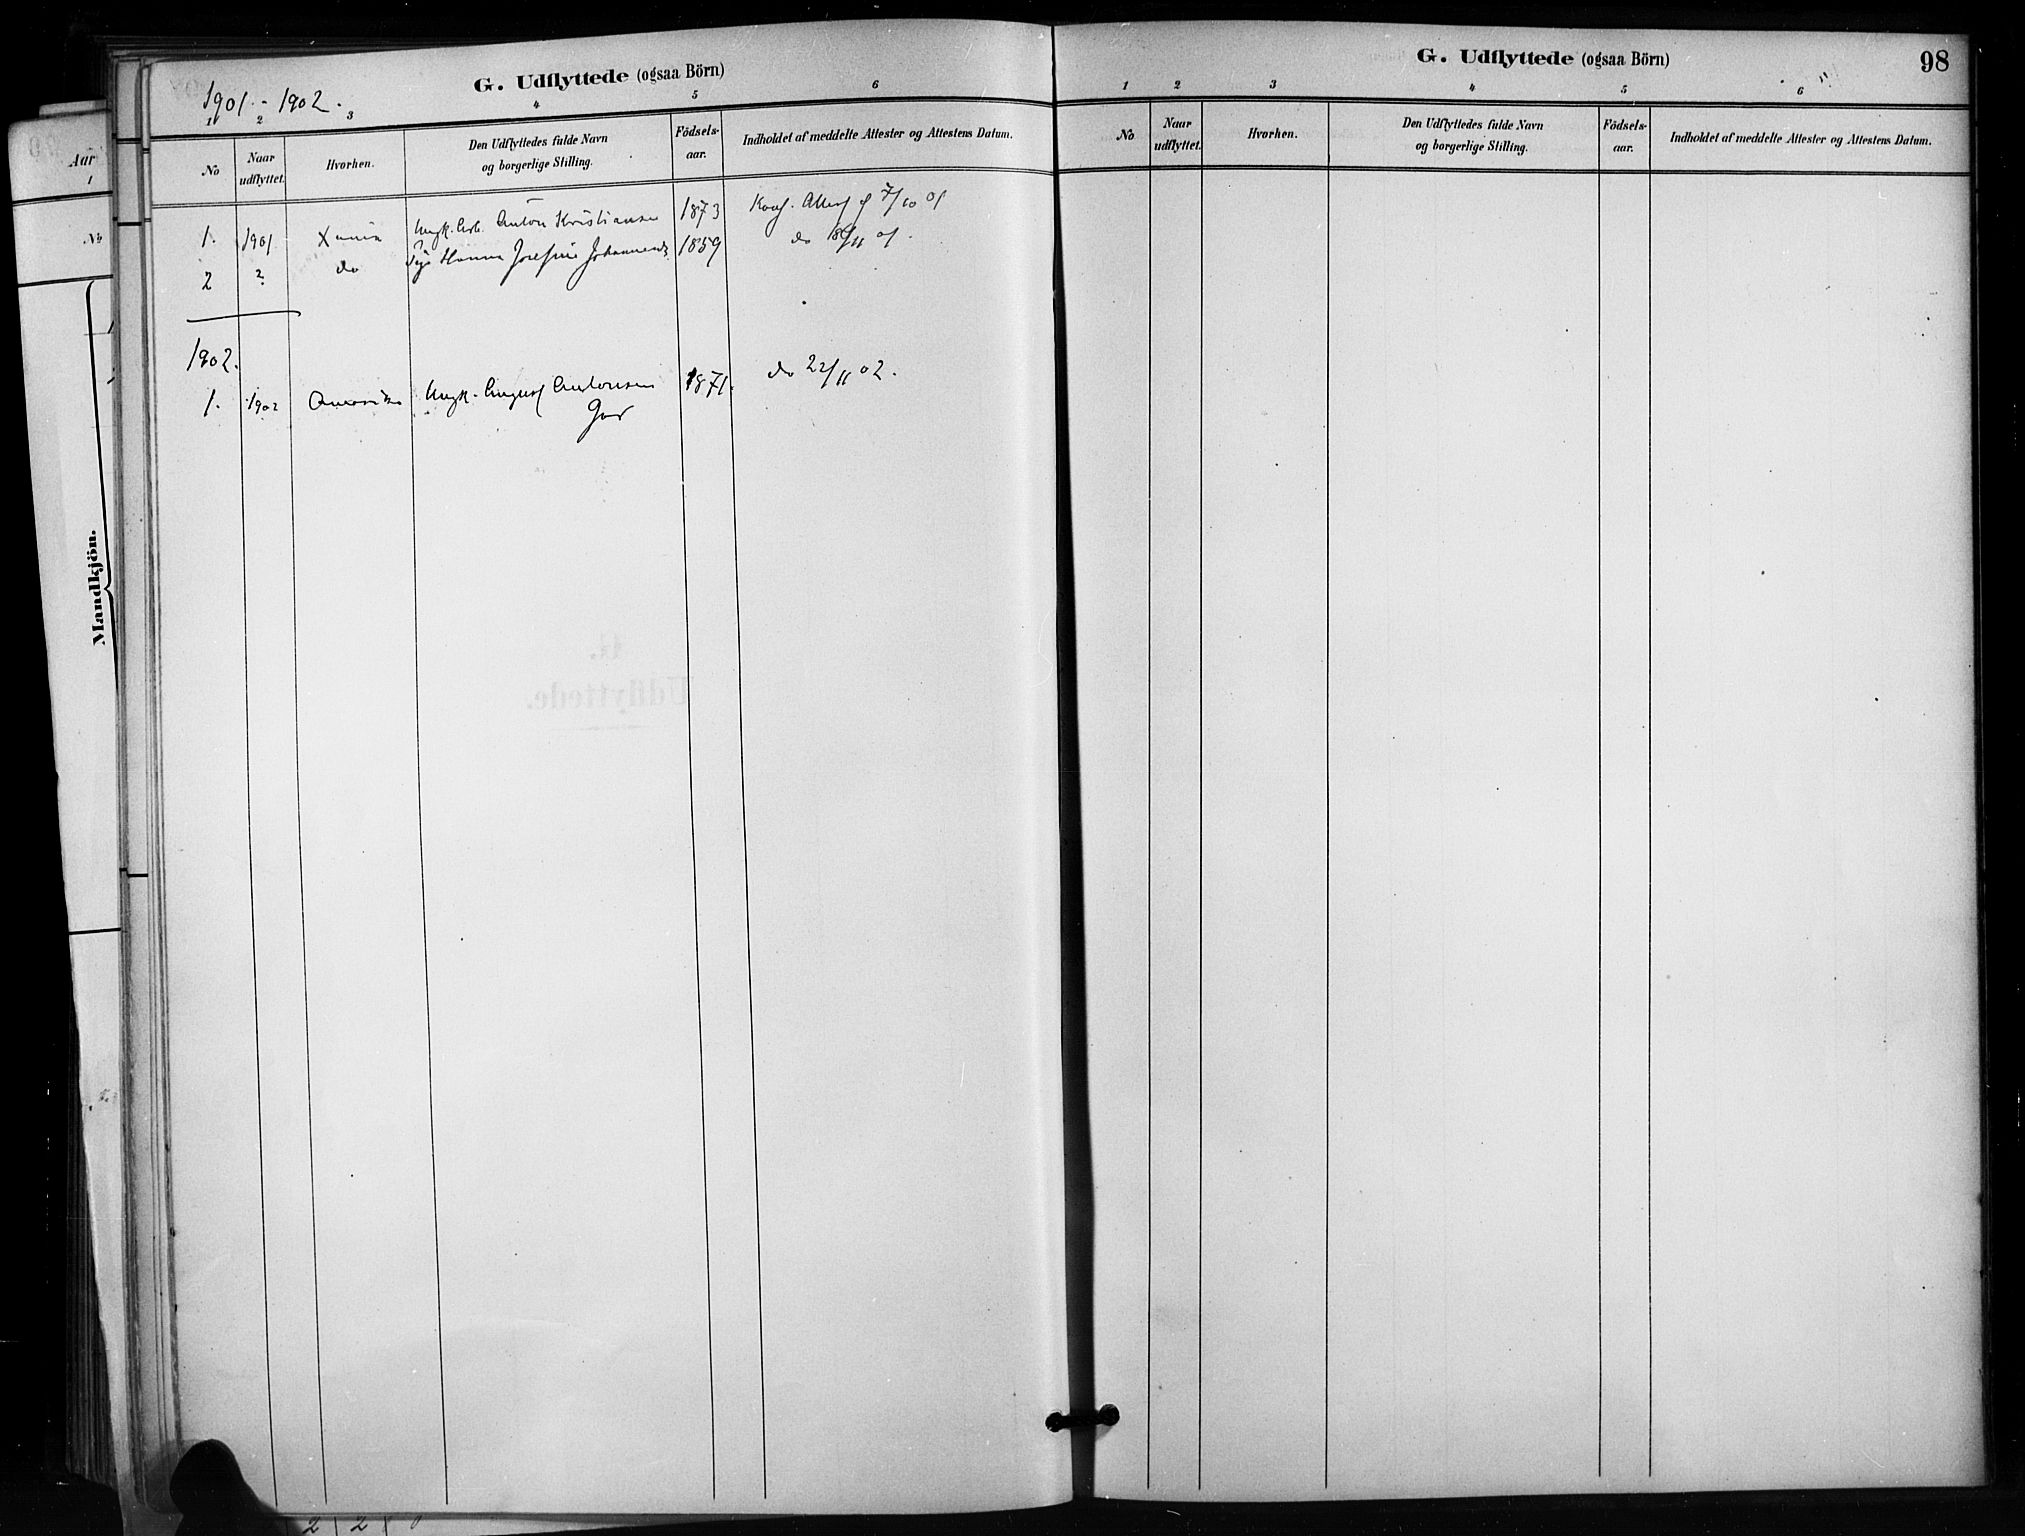 1901 - 1902.
G. Udflyttede (ogsaa Börn)
1 2 3 4 5 6
No
Naar udflyttet.
Hvorhen.
Den Udflyttedes fulde Navn
og borgerlige Stilling.
Födsels-
aar.
Indholdet af meddelte Attester og Attestens Datum.
1. 1901 Xania Ungk. Arb. Anton Kristiansen 1873 Konf. Attest 7/10 01
2 ? do Pige Hanna Josefine 1859 do 18/11 01.
1902.
1. 1902 Amerika Ungk. August Antonsen 1871. do 22/11 02.
G. Udflyttede (ogsaa Börn)
98
1 2 3 4 5 6
No
Naar
udflyttet.
Hvorhen.
Den Udflyttedes fulde Navn
og borgerlige Stilling.
Födsels-
aar.
Indholdet af meddelte Attester og Attestens Datum.
Aar
1
No
Mandkjön.